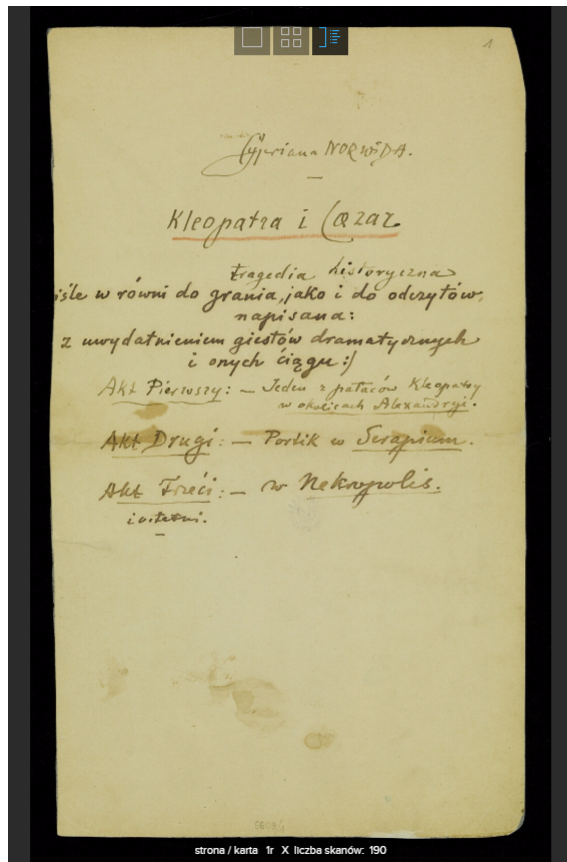 1
Cypriana NORWIDA.
Kleopatra i Cæzar
tragedia historyczna
iśle w równi do grania, jako i do odczytów,
napisana:
z uwydatnieniem giestów dramatycznych
i onych ciągu:/
Akt Pierwszy: — Jeden z pałaców Kleopatry
w okolicach Alexandryi.
Akt Drugi: — Portik w Serapium.
Akt Trzeci: — w Nekropolis.
i ostatni.
strona / karta 1r X liczba skanów: 190